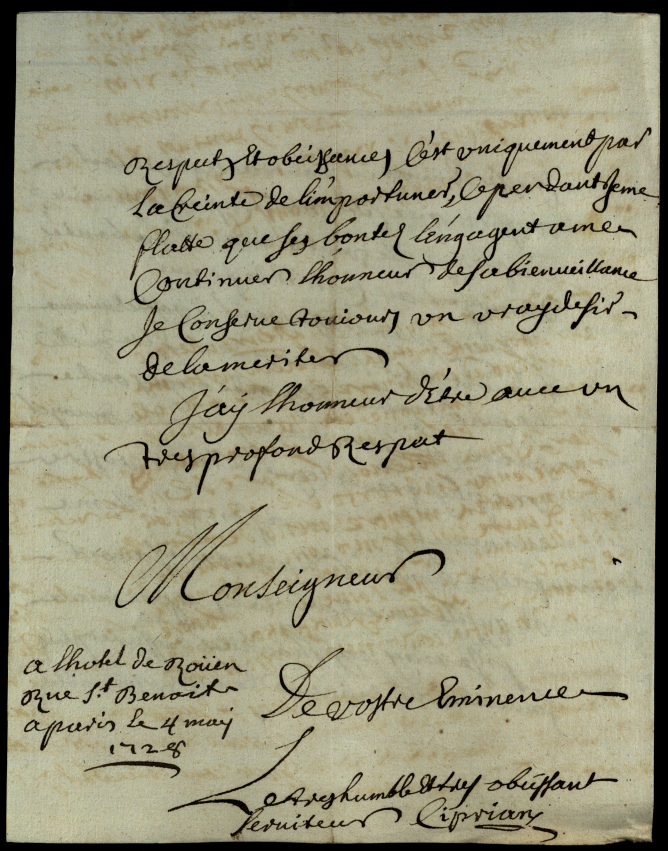 Respect, Et obeissance, C'est uniquement par
La Creinte de l'importuner, Cependant Je me
flatte que Ses bontez L'engagent a me
Continuer L'honneur de Sa bienveillance
Je Conserve toujours un vray desir
de la meriter
J'ay L'honneur d'Etre avec un
tres profond Respect
Monseigneur
a L'hotel de Roüen
Rue St Benoit
a paris le 4 may
1728
De vostre Eminence
Le tres humble Et tres obeissant
Serviteur Ciprian